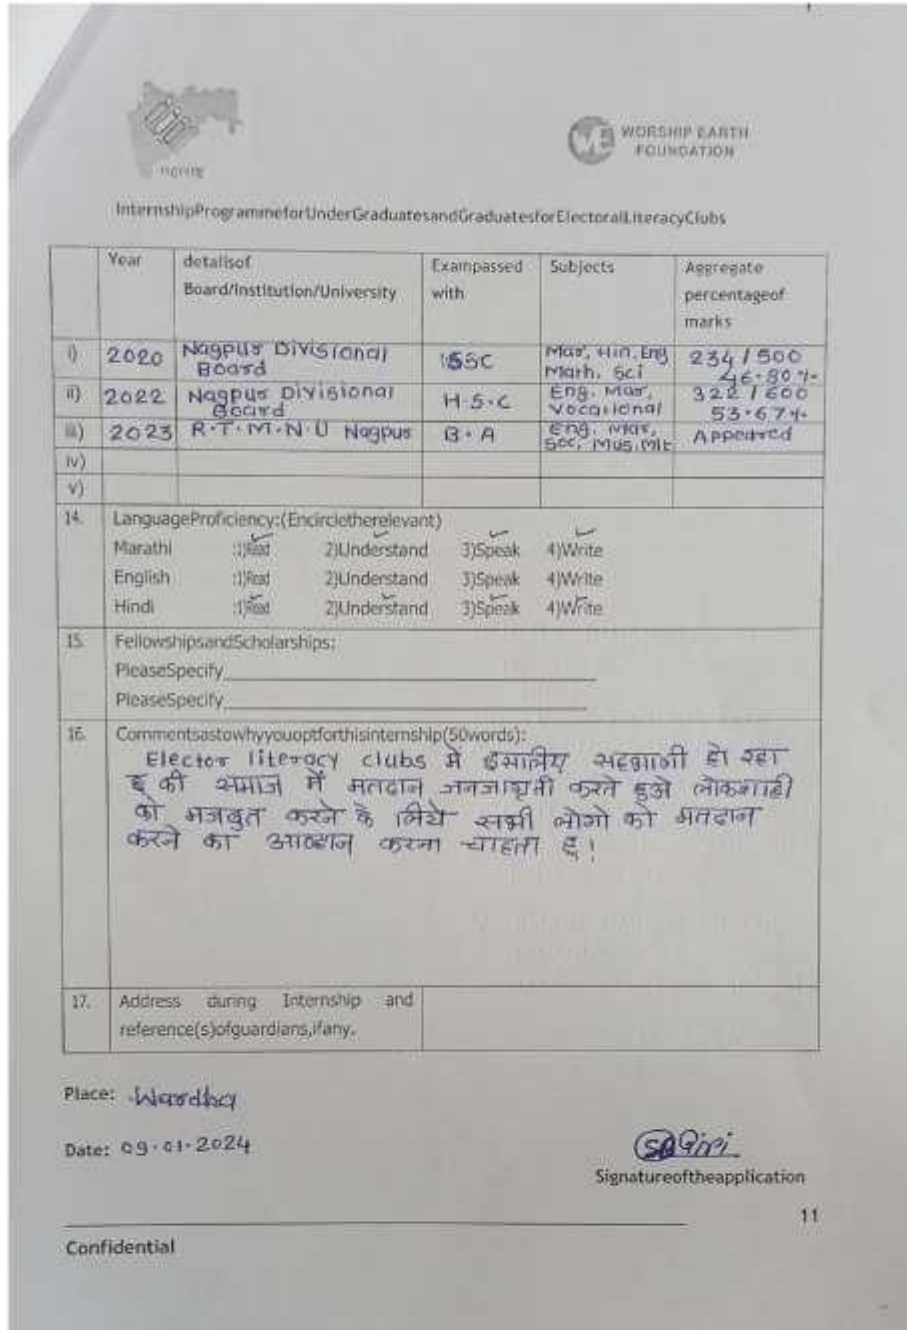 WORSHIP EARTH
FOUNDATION
InternshipProgrammeforUnderGraduatesandGraduatesforElectoralLiteracyClubs
Year detailsof Board/Institution/University Exampassed with Subjects Aggregate percentageof marks
i) 2020 Nagpur Divisional Board SSC Mar, Hin, Eng Math, Sci 234/500 46.80%
ii) 2022 Nagpur Divisional Board H.S.C Eng. Mar, Vocational 322/600 53.67%
iii) 2023 R.T.M.N.U Nagpur B.A Eng. Mar, Soc, Mus. Mlt Appeared
iv)
v)
14. LanguageProficiency:(Encircletherelevant)
Marathi :1)Read 2)Understand 3)Speak 4)Write
English :1)Read 2)Understand 3)Speak 4)Write
Hindi :1)Read 2)Understand 3)Speak 4)Write
15. FellowshipsandScholarships:
PleaseSpecify
PleaseSpecify
16. Commentsastowhyyouoptforthisinternship(50words):
Elector literacy clubs मे इसलिए सहभागी हो रहा
हू की समाज में मतदान जनजागृती करते हुओ लोकशाही
को मजबुत करने के लिये सभी लोगो को मतदान
करने का आव्हान करना चाहता हु।
17. Address during Internship and
reference(s)ofguardians,ifany.
Place: Wardha
Date: 09.01.2024
Giri
Signatureoftheapplication
11
Confidential